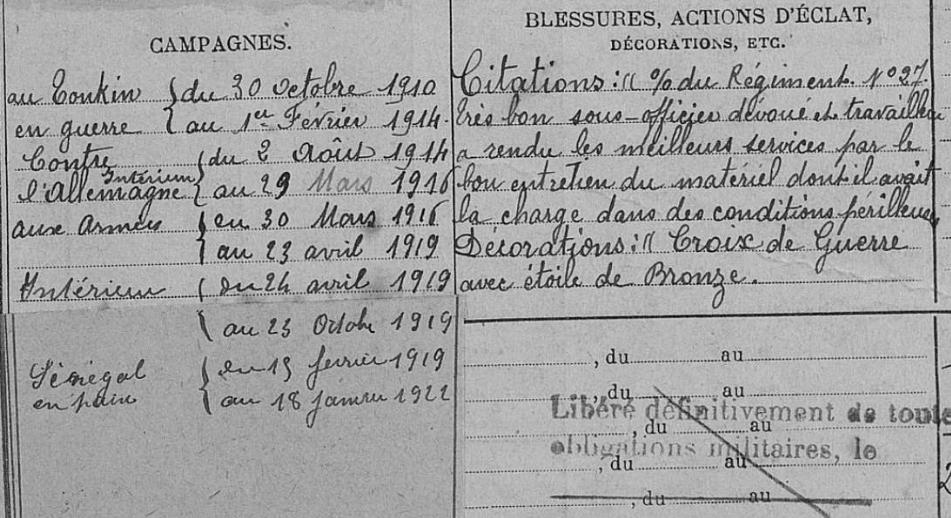 CAMPAGNES.
au Tonkin du 30 Octobre 1910
en guerre au 1er Février 1914.
Contre du 2 Août 1914
Intérieur
l'Allemagne au 29 Mars 1916
aux Armées du 30 Mars 1916
au 23 avril 1919
Intérieur du 24 avril 1919
au 23 Octobre 1919
Sénégal du 15 février 1919
en paix au 18 Janvier 1922
BLESSURES, ACTIONS D'ÉCLAT,
DÉCORATIONS, ETC.
Citations : du Régiment. No 27.
très bon sous-officier dévoué et travailleur
a rendu les meilleurs services par le
bon entretien du matériel dont il avait
la charge dans des conditions périlleuses
Décorations : Croix de Guerre
avec étoile de Bronze.
, du au
, du au
Libéré définitivement de toute
, du au
obligations militaires, le
, du au
, du au